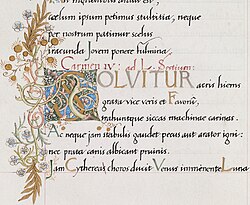 cælum ipsum petimus stultitia, neque
per nostrum patimur scelus
iracunda Jovem ponere fulmina.
Carmen IV: ad L. Sestium:
SOLVITUR acris hiems
grata vice veris et Favonî,
trahuntque siccas machinae carinas.
Ac neque jam stabulis gaudet pecus aut arator igni:
nec prata canis albicant pruinis.
Jam Cytherea choros ducit Venus imminente Luna